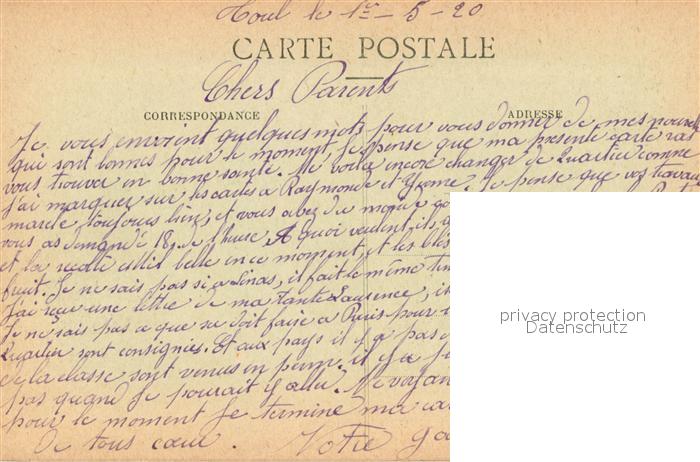 Toul le 1er - 5 - 20
CARTE POSTALE
Chers Parents
CORRESPONDANCE
ADRESSE
Je vous envoint quelques mots pour vous donner de mes nouvelles
qui sont bonnes pour le moment, je pense que ma présente carte va
vous trouver en bonne santé. Me voilà encore changer de Quartier comme
j'ai marquer sur les cartes a Raymonde et Yvonne. Je pense que vos travaux
marche toujours bien, et vous avez du monde
vous as demandé 18f de l'heure, A quoi veulent ils
et la recolte est il belle en ce moment, et les blés
fruit. Je ne sais pas si a Linas, il fait le même tem
J'ai reçu une lettre de ma tante Laurence, il
Je ne sais pas a que sa doit faire a Paris pour
Quartier sont consignés. Et aux pays il y a pas
de la classe sont venus en perm, il y a
pas quand je pourait y aller. Ne voyan
pour le moment je termine ma ca
De tous cœur. Votre
privacy protection
Datenschutz